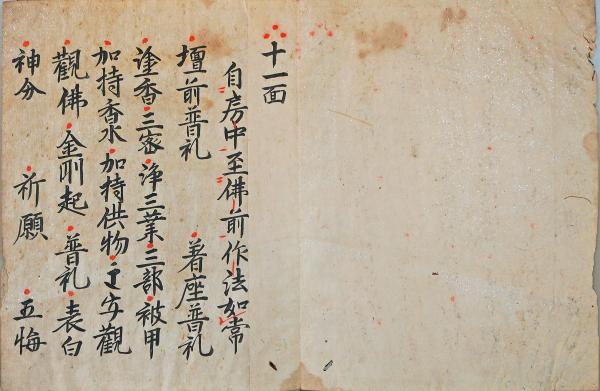 十一面
自房中至佛前作法如常
壇前普礼 着座普礼
塗香 三密 浄三業 三部 被甲
加持香水 加持供物 𛂦字觀
觀佛 金剛起 普礼 表白
神分 祈願 五悔